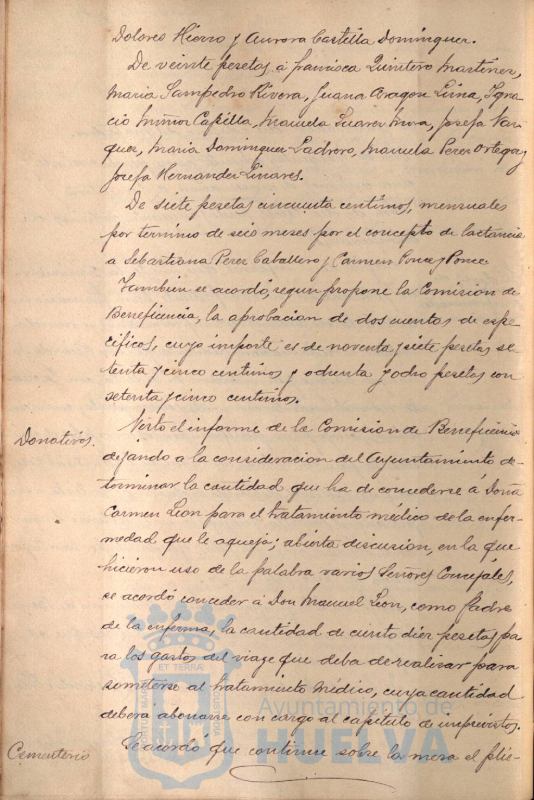 Dolores Hierro y Aurora Castilla Dominguez.
De veinte pesetas á Francisca Quintero Martinez,
Maria Sampedro Rivera, Juana Aragon Lima, Igna-
cio Muñoz Capilla, Manuela Suarez Mora, Josefa Vaz-
quez, Maria Dominguez Ladrero, Manuela Perez Ortega y
Josefa Hernandez Linares.
De siete pesetas cincuenta centimos, mensuales
por termino de seis meses por el concepto de lactancia
a Sebastiana Perez Caballero y Carmen Ponce y Ponce
Tambien se acordó, segun propone la Comision de
Beneficencia, la aprobacion de dos cuentas de espe-
cificos, cuyo importe es de noventa y siete pesetas se-
tenta y cinco centimos y ochenta y ocho pesetas con
setenta y cinco centimos.
Donativos.
Visto el informe de la Comision de Beneficencia
dejando a la consideracion del Ayuntamiento de-
terminar la cantidad que ha de concederse á Doña
Carmen Leon para el tratamiento médico de la enfer-
medad que le aqueja; abierta discusion, en la que
hicieron uso de la palabra varios Señores Concejales,
se acordó conceder á Don Manuel Leon, como Padre
de la enferma, la cantidad de ciento diez pesetas pa-
ra los gastos del viage que deba de realizar para
someterse al tratamiento médico, cuya cantidad
deberá abonarse con cargo al capitulo de imprevistos.
Cementerio
Se acordó que continue sobre la mesa el plie-
ET TERRÆ
Ayuntamiento de
HUELVA